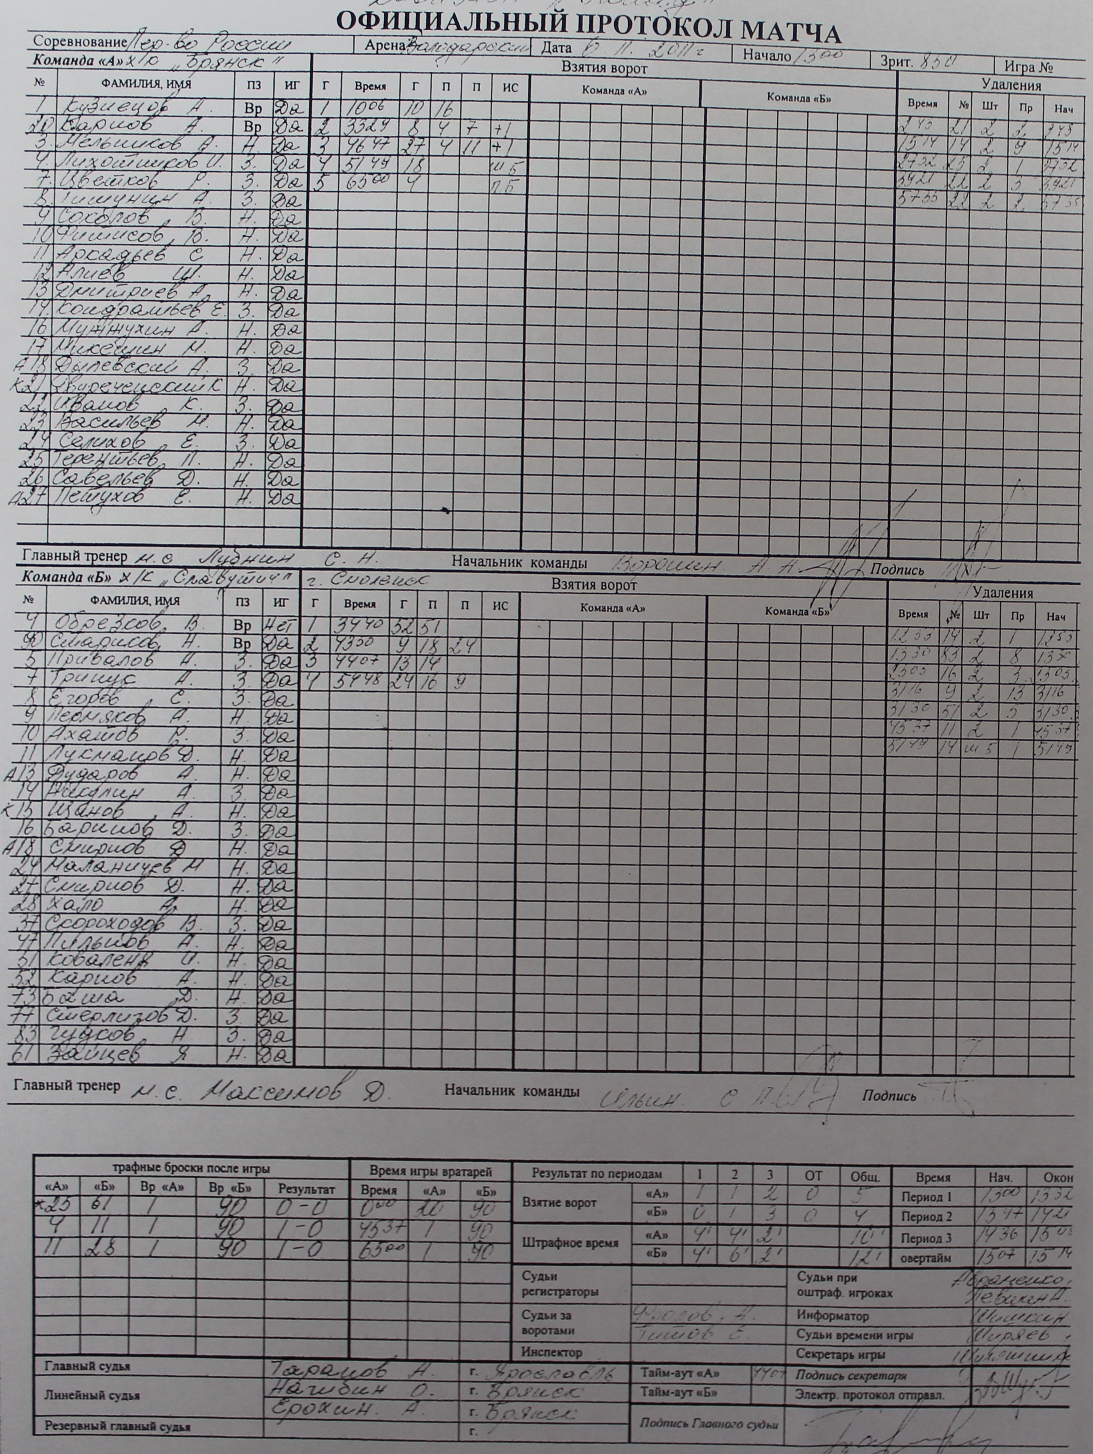 ОФИЦИАЛЬНЫЙ ПРОТОКОЛ МАТЧА
Соревнование Пер-во России Арена Володарский Дата 6 11. 2011г Начало 1300 Зрит. 850 Игра №
Команда «А» х/к "Брянск" Взятия ворот Удаления
№ ФАМИЛИЯ, ИМЯ ПЗ ИГ Г Время Г П П ИС Команда «А» Команда «Б» Время № Шт Пр Нач
1 Кузнецов А. Вр Да 1 1006 10 16
20 Карпов А. Вр Да 2 3329 8 4 7 +1 243 21 2 2 243
3. Мельников А. Н. Да 3 4647 27 4 11 +1 1514 14 2 9 1514
4. Лихотников И. З. Да 4 5149 18 ш б 2732 25 2 1 2732
7. Цветков Р. З. Да 5 6500 4 п б 3921 22 2 3 3921
8. Тимунин А. З. Да 5735 22 2 2 5735
9 Соколов В. Н. Да
10 Фитисов В. Н. Да
11 Аркадьев С Н. Да
12 Алиев Ш. Н. Да
13 Дмитриев А. Н. Да
14 Кондратьев Е. З. Да
16 Мужжухин А. Н. Да
17 Микешин М. Н. Да
А18 Дылевский А. З. Да
К21 К Н. Да
22 Иванов К. З. Да
23 Васильев М. Н. Да
24 Салихов Е. З. Да
25 Терентьев П. Н. Да
26 Савельев Д. Н. Да
А27 Петухов Е. Н. Да
Главный тренер м.с Лубнин С. Н. Начальник команды Ворошин А А Подпись
Команда «Б» х/к "Славутич" г. Смоленск Взятия ворот Удаления
№ ФАМИЛИЯ, ИМЯ ПЗ ИГ Г Время Г П П ИС Команда «А» Команда «Б» Время № Шт Пр Нач
4 Обрезков В. Вр Нет 1 3440 32 51 1253 14 2 1 1253
90 Стариков Н. Вр Да 2 4350 9 18 24 1330 83 2 8 1330
5 Привалов А. З. Да 3 4407 13 14 2503 16 2 3 2503
7 Грищук А. З. Да 4 5448 24 16 9 3116 9 2 13 3116
8 Егоров С. З. Да 3130 51 2 5 3130
9 Пермяков А. Н. Да 4537 11 2 1 4537
10 Ахатов Р. З. Да 5149 14 ш б 1 5149
11 Лукманов Д. Н. Да
А13 Дударов А. Н. Да
14 Николин А. З. Да
К15 Иванов А. Н. Да
16 Баринов Д. З. Да
А18 Смирнов Д Н. Да
24 Маланичев М Н. Да
27 Смирнов Д. Н. Да
28 Хало А. Н. Да
37 Скороходов В. З. Да
47 Пильнов А. Н. Да
51 Ковалев И. Н. Да
52 Карпов А. Н. Да
73 Баша Д. Н. Да
77 Стерлигов Д. З. Да
83 Гудков Н З. Да
61 Зайцев Я Н. Да
Главный тренер м.с. Максимов Д. Начальник команды Ильин. С А Подпись
трафные броски после игры Время игры вратарей Результат по периодам 1 2 3 ОТ Общ. Время Нач. Окон
«А» «Б» Вр «А» Вр «Б» Результат Время «А» «Б» Взятие ворот «А» 1 1 2 0 5 Период 1 1300 1332
*25 61 1 90 0-0 000 20 90 «Б» 0 1 3 0 4 Период 2 1347 1421
4 11 1 90 1-0 4537 1 90 Штрафное время «А» 4' 4' 2' 10' Период 3 1436 150
11 28 1 90 1-0 6500 1 90 «Б» 4' 6' 2' 12' овертайм 1507 1514
Судьи регистраторы Судьи при оштраф. игроках Авраменко. Левакин А.
Судьи за воротами Фролов А. Титов Е Информатор Шишкин
Судьи времени игры Ширяев
Инспектор Секретарь игры
Главный судья Таранов А. г. Ярославль Тайм-аут «А» 4407 Подпись секретаря
Линейный судья Нагибин О. г. Брянск Тайм-аут «Б» Электр. протокол отправл.
Ерохин. А. г. Брянск
Резервный главный судья г. Подпись Главного судьи